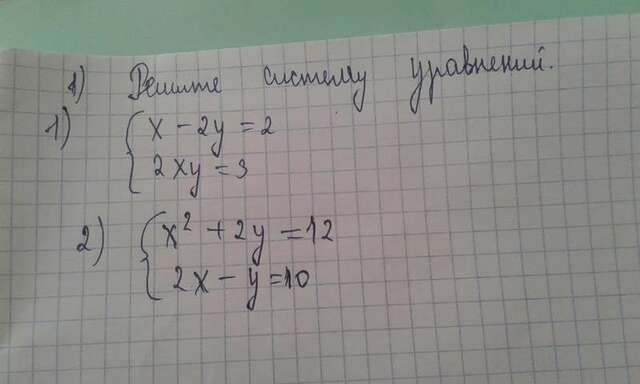 1) Решите систему уравнений.
1) { x - 2y = 2
2xy = 3
2) { x² + 2y = 12
2x - y = 10